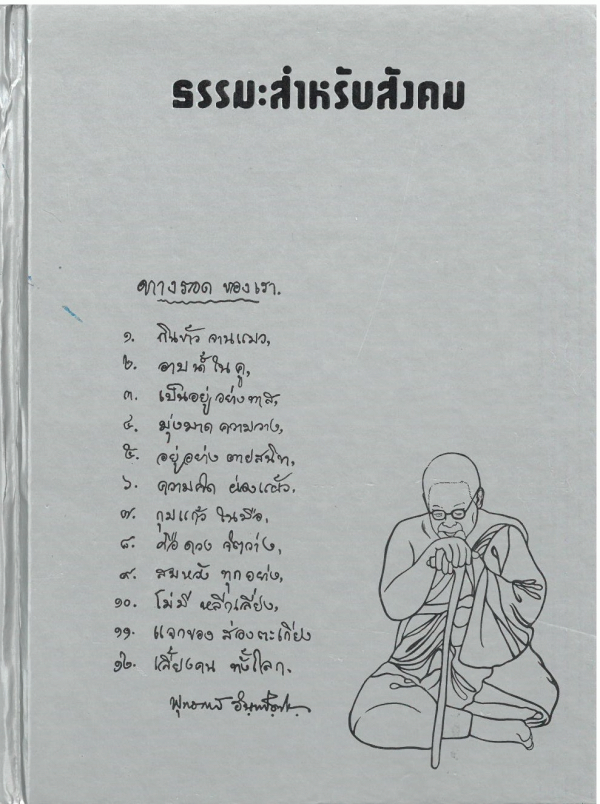 ธรรมะสำหรับสังคม
ทางรอด ของเรา.
๑. กินข้าว จานแมว,
๒. อาบน้ำ ในคู,
๓. เป็นอยู่ อย่างทาส,
๔. มุ่งมาด ความว่าง,
๕. อยู่อย่าง ตายสนิท,
๖. ความคิด ผ่องแผ้ว,
๗. กุมแก้ว ในมือ,
๘. คือดวง จิตว่าง,
๙. สมหวัง ทุกอย่าง,
๑๐. ไม่มี หลีกเลี่ยง,
๑๑. แจกของ ส่องตะเกียง
๑๒. เลี้ยงคน ทั้งโลก.
พุทธทาส อินฺทปญฺโญ